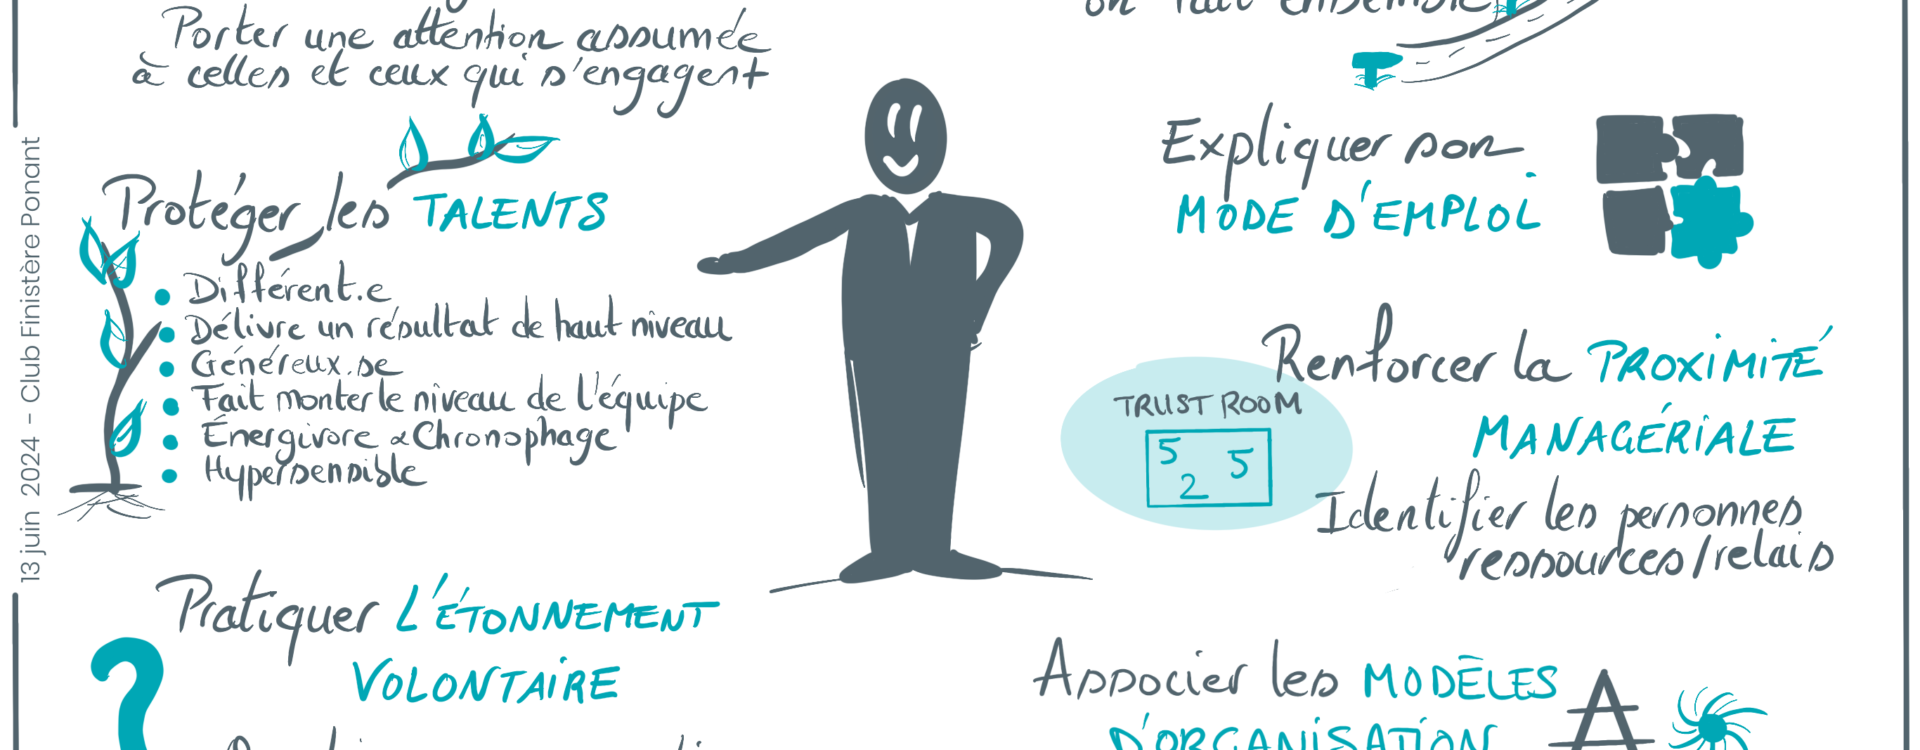 Porter une attention assumée
à celles et ceux qui s'engagent
Protéger les TALENTS
Différent.e
Délivre un résultat de haut niveau
Généreux.se
Fait monter le niveau de l'équipe
Énergivore & Chronophage
Hypersensible
Pratiquer L'ÉTONNEMENT
VOLONTAIRE
on fait ensemble
Expliquer son
MODE D'EMPLOI
Renforcer la PROXIMITÉ
MANAGÉRIALE
TRUST ROOM
5 5
2
Identifier les personnes
ressources/relais
Associer les MODÈLES
D'ORGANISATION
13 juin 2024 - Club Finistère Ponant